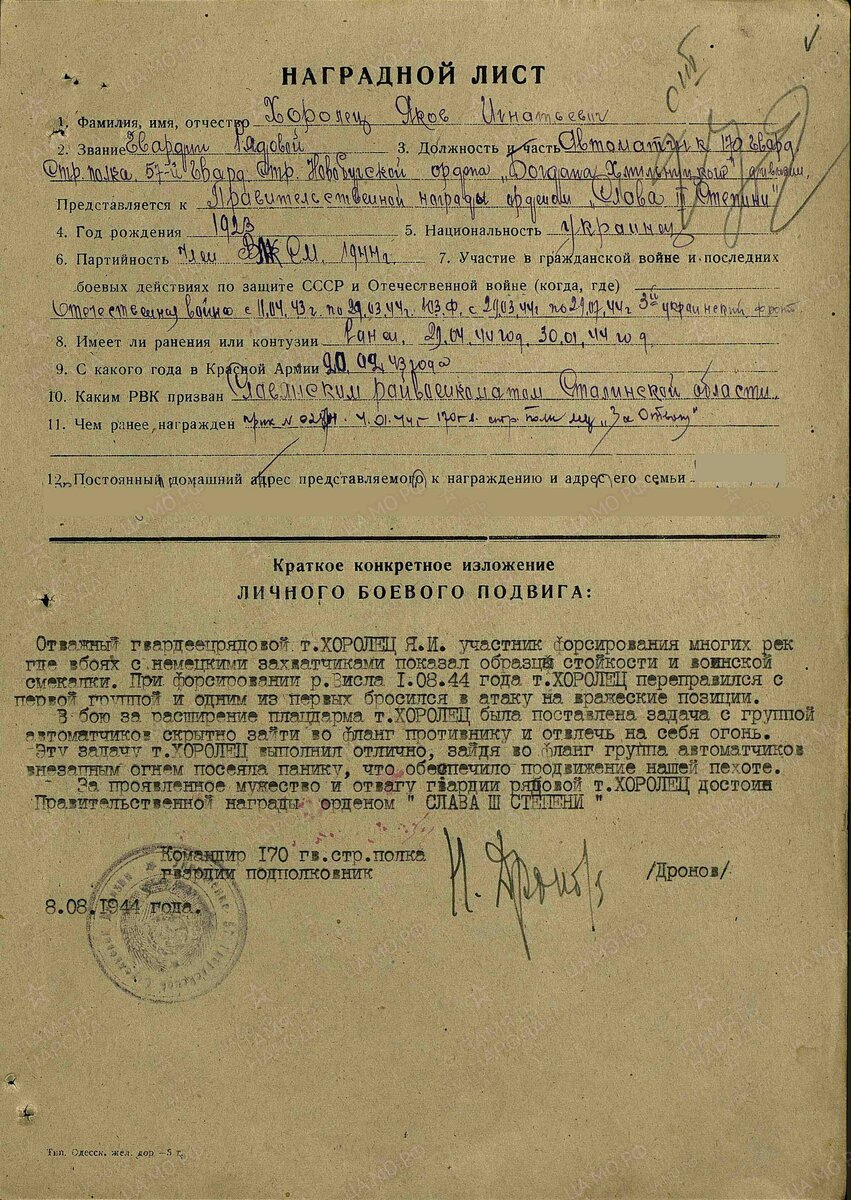 НАГРАДНОЙ ЛИСТ
1. Фамилия, имя, отчество Хоролец Яков Игнатьевич
2. Звание Гвардии Рядовой 3. Должность и часть Автоматчик 170 Гвард.
Стр. полка 57-й Гвард. Стр. Новобугской ордена „Богдана Хмельницкого" дивизии.
Представляется к Правительственной награды орденом „Слава III Степини"
4. Год рождения 1923 5. Национальность Украинец
6. Партийность Член ВЛКСМ. 1944 г. 7. Участие в гражданской войне и последних
боевых действиях по защите СССР и Отечественной войне (когда, где)
Отечественная война с 11.04.43 г. по 29.03.44 г. Ю.З.Ф. с 29.03.44 г. по 29.07.44 г 3й украинский фронт
8. Имеет ли ранения или контузии ранен. 29.04.44 год, 30.01.44 год.
9. С какого года в Красной Армии 20.02.43 года
10. Каким РВК призван Славянским райвоенкоматом Сталинской области.
11. Чем ранее награжден 4.01.44 г. 170 г. стр. полк „За Отвагу"
12. Постоянный домашний адрес представляемого к награждению и адрес его семьи
Краткое конкретное изложение
ЛИЧНОГО БОЕВОГО ПОДВИГА:
Отважный гвардеецрядовой т.ХОРОЛЕЦ Я.И. участник форсирования многих рек
где вбоях с немецкими захватчиками показал образцы стойкости и воинской
смекалки. При форсировании р.Висла 1.08.44 года т.ХОРОЛЕЦ переправился с
первой группой и одним из первых бросился в атаку на вражеские позиции.
В бою за расширение плацдарма т.ХОРОЛЕЦ была поставлена задача с группой
автоматчиков скрытно зайти во фланг противнику и отвлечь на себя огонь.
Эту задачу т.ХОРОЛЕЦ выполнил отлично, зайдя во фланг группа автоматчиков
внезапным огнем посеяла панику, что обеспечило продвижение нашей пехоте.
За проявленное мужество и отвагу гвардии рядовой т.ХОРОЛЕЦ достоин
Правительственной награды орденом " СЛАВА III СТЕПЕНИ "
Командир 170 гв.стр.полка
гвардии подполковник Н. Дронов /Дронов/
8.08.1944 года.
Тип. Одесск. жел. дор —5 г.